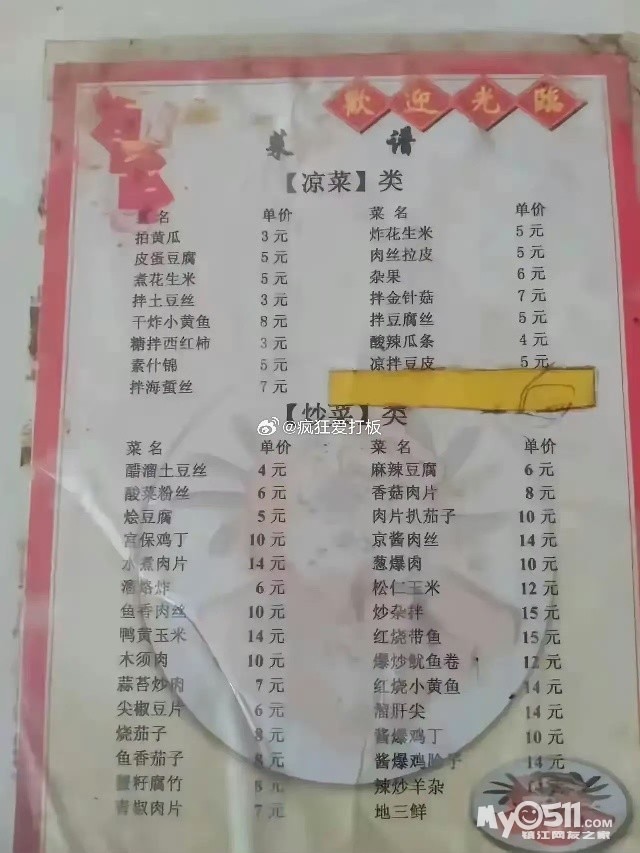 歡迎光臨
菜 谱
【凉菜】类
菜 名 单价 菜 名 单价
拍黄瓜 3 元 炸花生米 5 元
皮蛋豆腐 5 元 肉丝拉皮 5 元
煮花生米 5 元 杂果 6 元
拌土豆丝 3 元 拌金针菇 7 元
干炸小黄鱼 8 元 拌豆腐丝 5 元
糖拌西红柿 3 元 酸辣瓜条 4 元
素什锦 5 元 凉拌豆皮 5 元
拌海蜇丝 7 元
【炒菜】类
@疯狂爱打板
菜 名 单价 菜 名 单价
醋溜土豆丝 4 元 麻辣豆腐 6 元
酸菜粉丝 6 元 香菇肉片 8 元
烩豆腐 5 元 肉片扒茄子 10 元
宫保鸡丁 10 元 京酱肉丝 14 元
水煮肉片 14 元 葱爆肉 10 元
溜咯炸 6 元 松仁玉米 12 元
鱼香肉丝 10 元 炒杂拌 15 元
鸭黄玉米 14 元 红烧带鱼 15 元
木须肉 10 元 爆炒鱿鱼卷 12 元
蒜苔炒肉 7 元 红烧小黄鱼 14 元
尖椒豆片 6 元 溜肝尖 14 元
烧茄子 8 元 酱爆鸡丁 10 元
鱼香茄子 8 元 酱爆鸡胗子 14 元
蟹籽腐竹 8 元 辣炒羊杂 14
青椒肉片 7 元 地三鲜
My0511.com
镇江网友之家